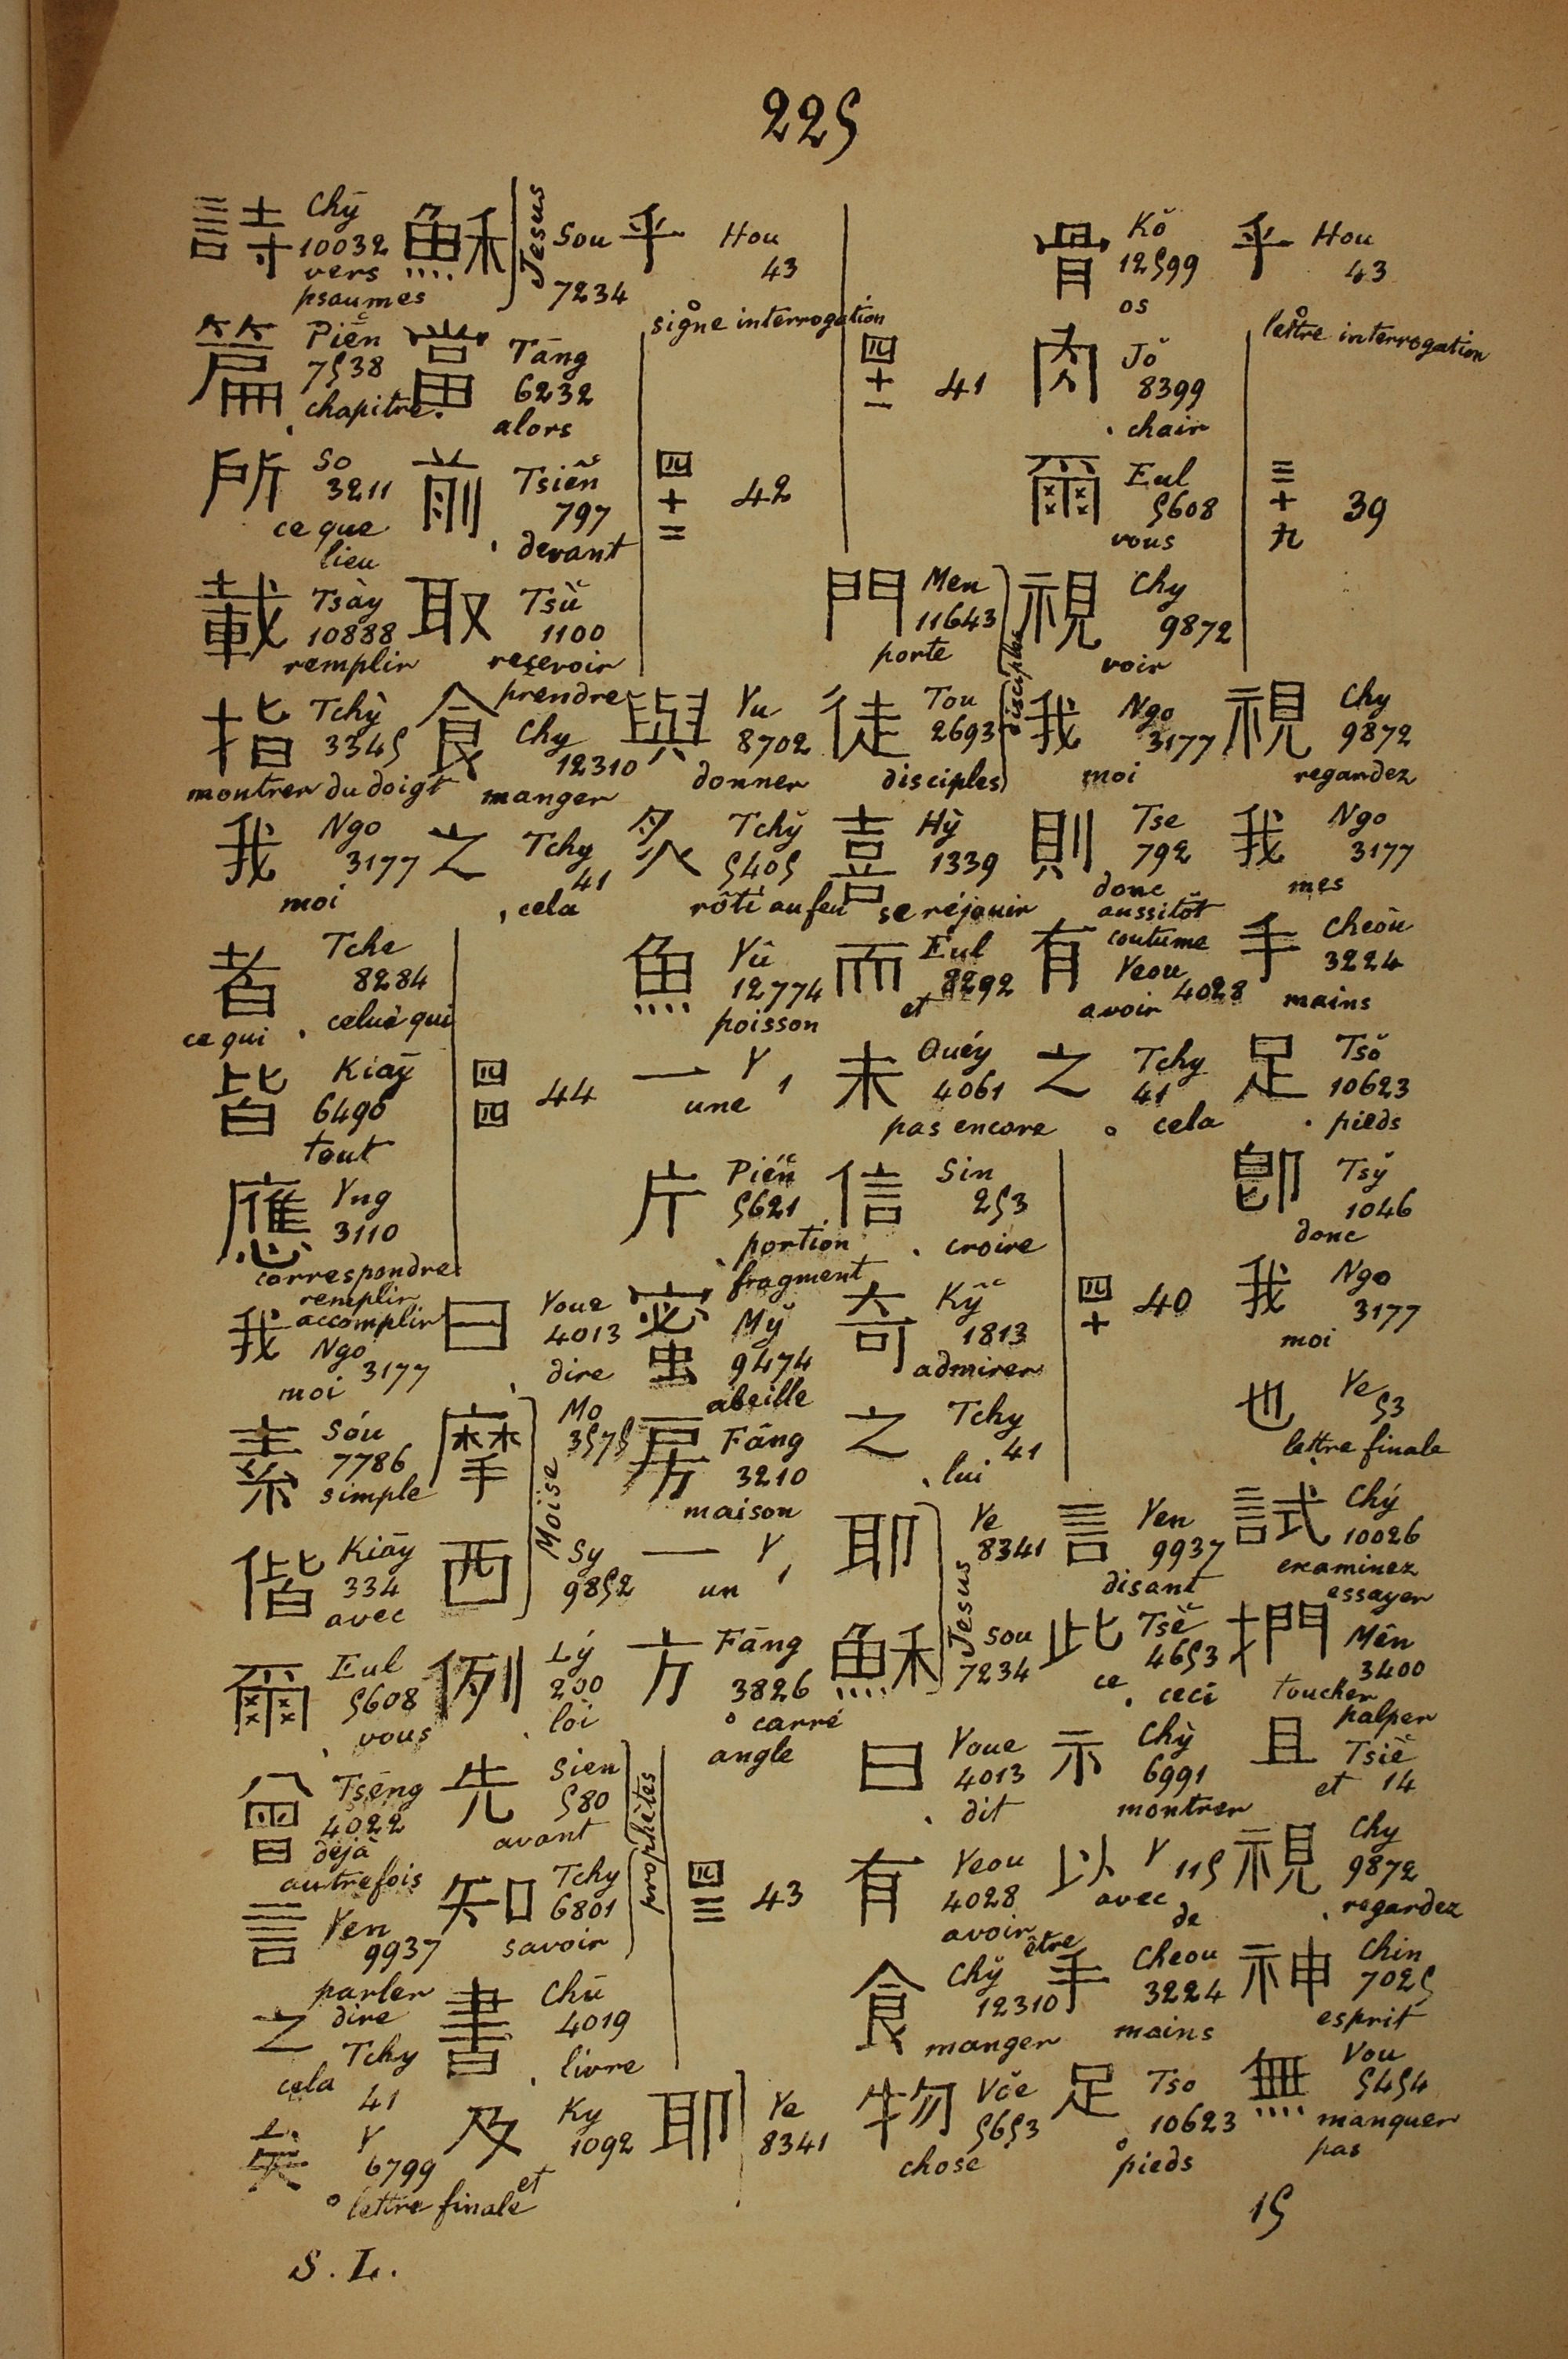 225
乎 Hou 43
lettre interrogation
三十九 39
視 Chy 9872 regardez
我 Ngo 3177 mes
手 Cheòu 3224 mains
足 Tsŏ 10623 pieds
卽 Tsy̆ 1046 donc
我 Ngo 3177 moi
也 Ye 53 lettre finale
試 Chý 10026 examinez essayer
捫 Mên 3400 toucher palper
且 Tsiĕ 14 et
視 Chy 9872 regardez
神 Chin 7025 esprit
無 Vou 5454 manquer pas
骨 Kŏ 12599 os
肉 Jŏ 8399 chair
爾 Eul 5608 vous
視 Chy 9872 voir
我 Ngo 3177 moi
則 Tse 792 donc aussitôt coutume
有 Yeou 4028 avoir
之 Tchy 41 cela
四十 40
言 Yen 9937 disant
此 Tsĕ 4653 ce ceci
示 Chỳ 6991 montrer
以 Y 115 avec de
手 Cheou 3224 mains
足 Tso 10623 pieds
四十一 41
門 Men 11643 porte
disciples
徒 Tou 2693 disciples
喜 Hỳ 1339 se réjouir
而 Eul 8292 et
未 Ouéy 4061 pas encore
信 Sin 253 croire
奇 Ky̆ 1813 admirer
之 Tchy 41 lui
耶 Ye 8341
Jesus
穌 Sou 7234
曰 Youe 4013 dit
有 Yeou 4028 avoir être
食 Chy̆ 12310 manger
物 Vŏe 5653 chose
乎 Hou 43
signe interrogation
四十二 42
與 Yu 8702 donner
炙 Tchy̆ 5405 rôti au feu
魚 Yû 12774 poisson
一 Y 1 une
片 Pién 5621 portion fragment
蜜 My̆ 9474 abeille
房 Fâng 3210 maison
一 Y 1 un
方 Fāng 3826 carré angle
四三 43
耶 Ye 8341
穌 Sou 7234
Jesus
當 Tāng 6232 alors
前 Tsiĕn 797 devant
取 Tsŭ 1100 reçevoir prendre
食 Chy 12310 manger
之 Tchy 41 cela
四四 44
曰 Youe 4013 dire
摩 Mo 3575
Moise
西 Sy 9852
例 Lý 200 loi
先 Sien 580 avant
prophètes
知 Tchy 6801 savoir
書 Chū 4019 livre
及 Ky 1092 et
詩 Chȳ 10032 vers psaumes
篇 Piĕn 7538 chapitre
所 So 3211 ce que lieu
載 Tsày 10888 remplir
指 Tchỳ 3345 montrer du doigt
我 Ngo 3177 moi
者 Tche 8284 ce qui celui qui
皆 Kiaȳ 6490 tout
應 Yng 3110 correspondre remplir accomplir
我 Ngo 3177 moi
素 Sóu 7786 simple
偕 Kiāy 334 avec
爾 Eul 5608 vous
曾 Tsēng 4022 dejà autrefois
言 Yen 9937 parler dire
之 Tchy 41 cela
矣 Y 6799 lettre finale
15
S. L.